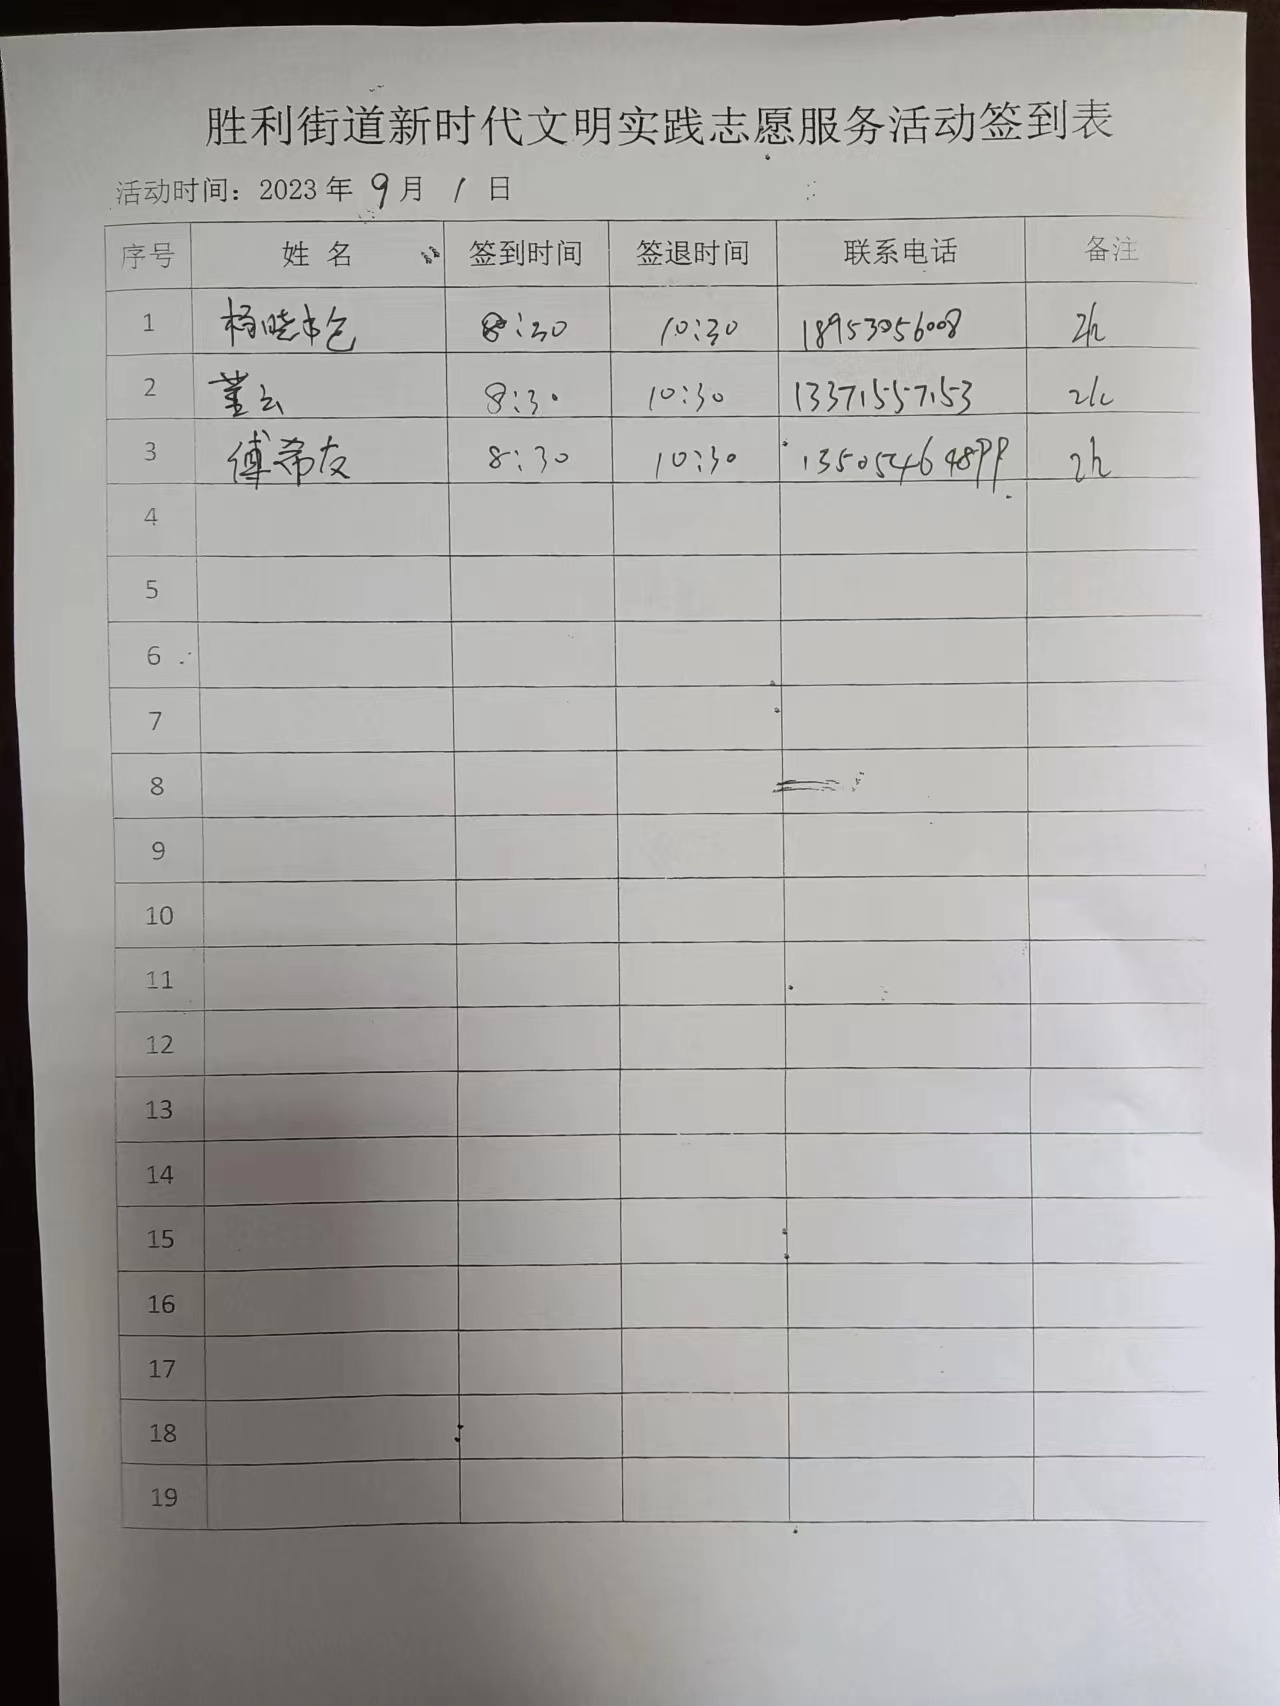 胜利街道新时代文明实践志愿服务活动签到表
活动时间：2023年 9月 1日
序号 姓名 签到时间 签退时间 联系电话 备注
1 杨晓 8:30 10:30 18953056008 2h
2 董云 8:30 10:30 13371557153 2h
3 傅希友 8:30 10:30 13505464899 2h
4
5
6
7
8
9
10
11
12
13
14
15
16
17
18
19